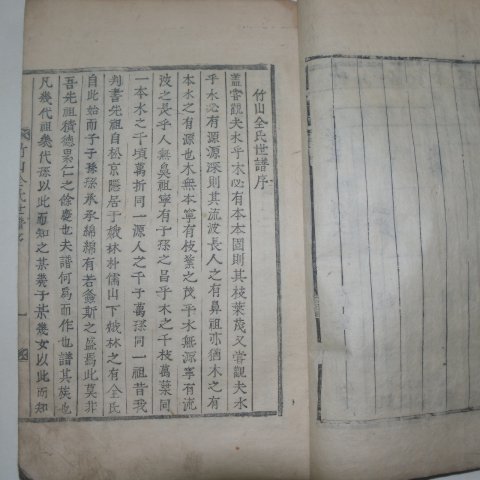 竹山全氏世譜序
蓋嘗觀夫木乎木必有本本固則其枝葉茂又嘗觀夫水
乎水必有源源深則其流波長人之有鼻祖亦猶木之有
本水之有源也木無本寧有枝葉之茂乎水無源寧有流
波之長乎人無鼻祖寧有子孫之昌乎木之千枝萬葉同
一本水之千頃萬折同一源人之千子萬孫同一祖昔我
判書先祖自松京隱居于娥林朴儒山下娥林之有全氏
自此始而子子孫孫承承綿綿有若螽斯之盛焉此莫非
吾先祖積德累仁之餘慶也夫譜何爲而作也譜其族也
凡幾代祖幾代孫以此而知之某幾子某幾女以此而知
竹山全氏世譜序
一